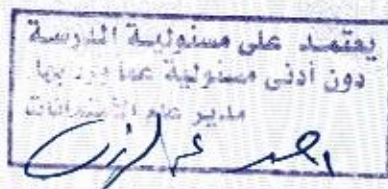 يعتمد على مسئولية المدرسة
دون أدنى مسئولية عما ورد بها
مدير عام الامتحانات